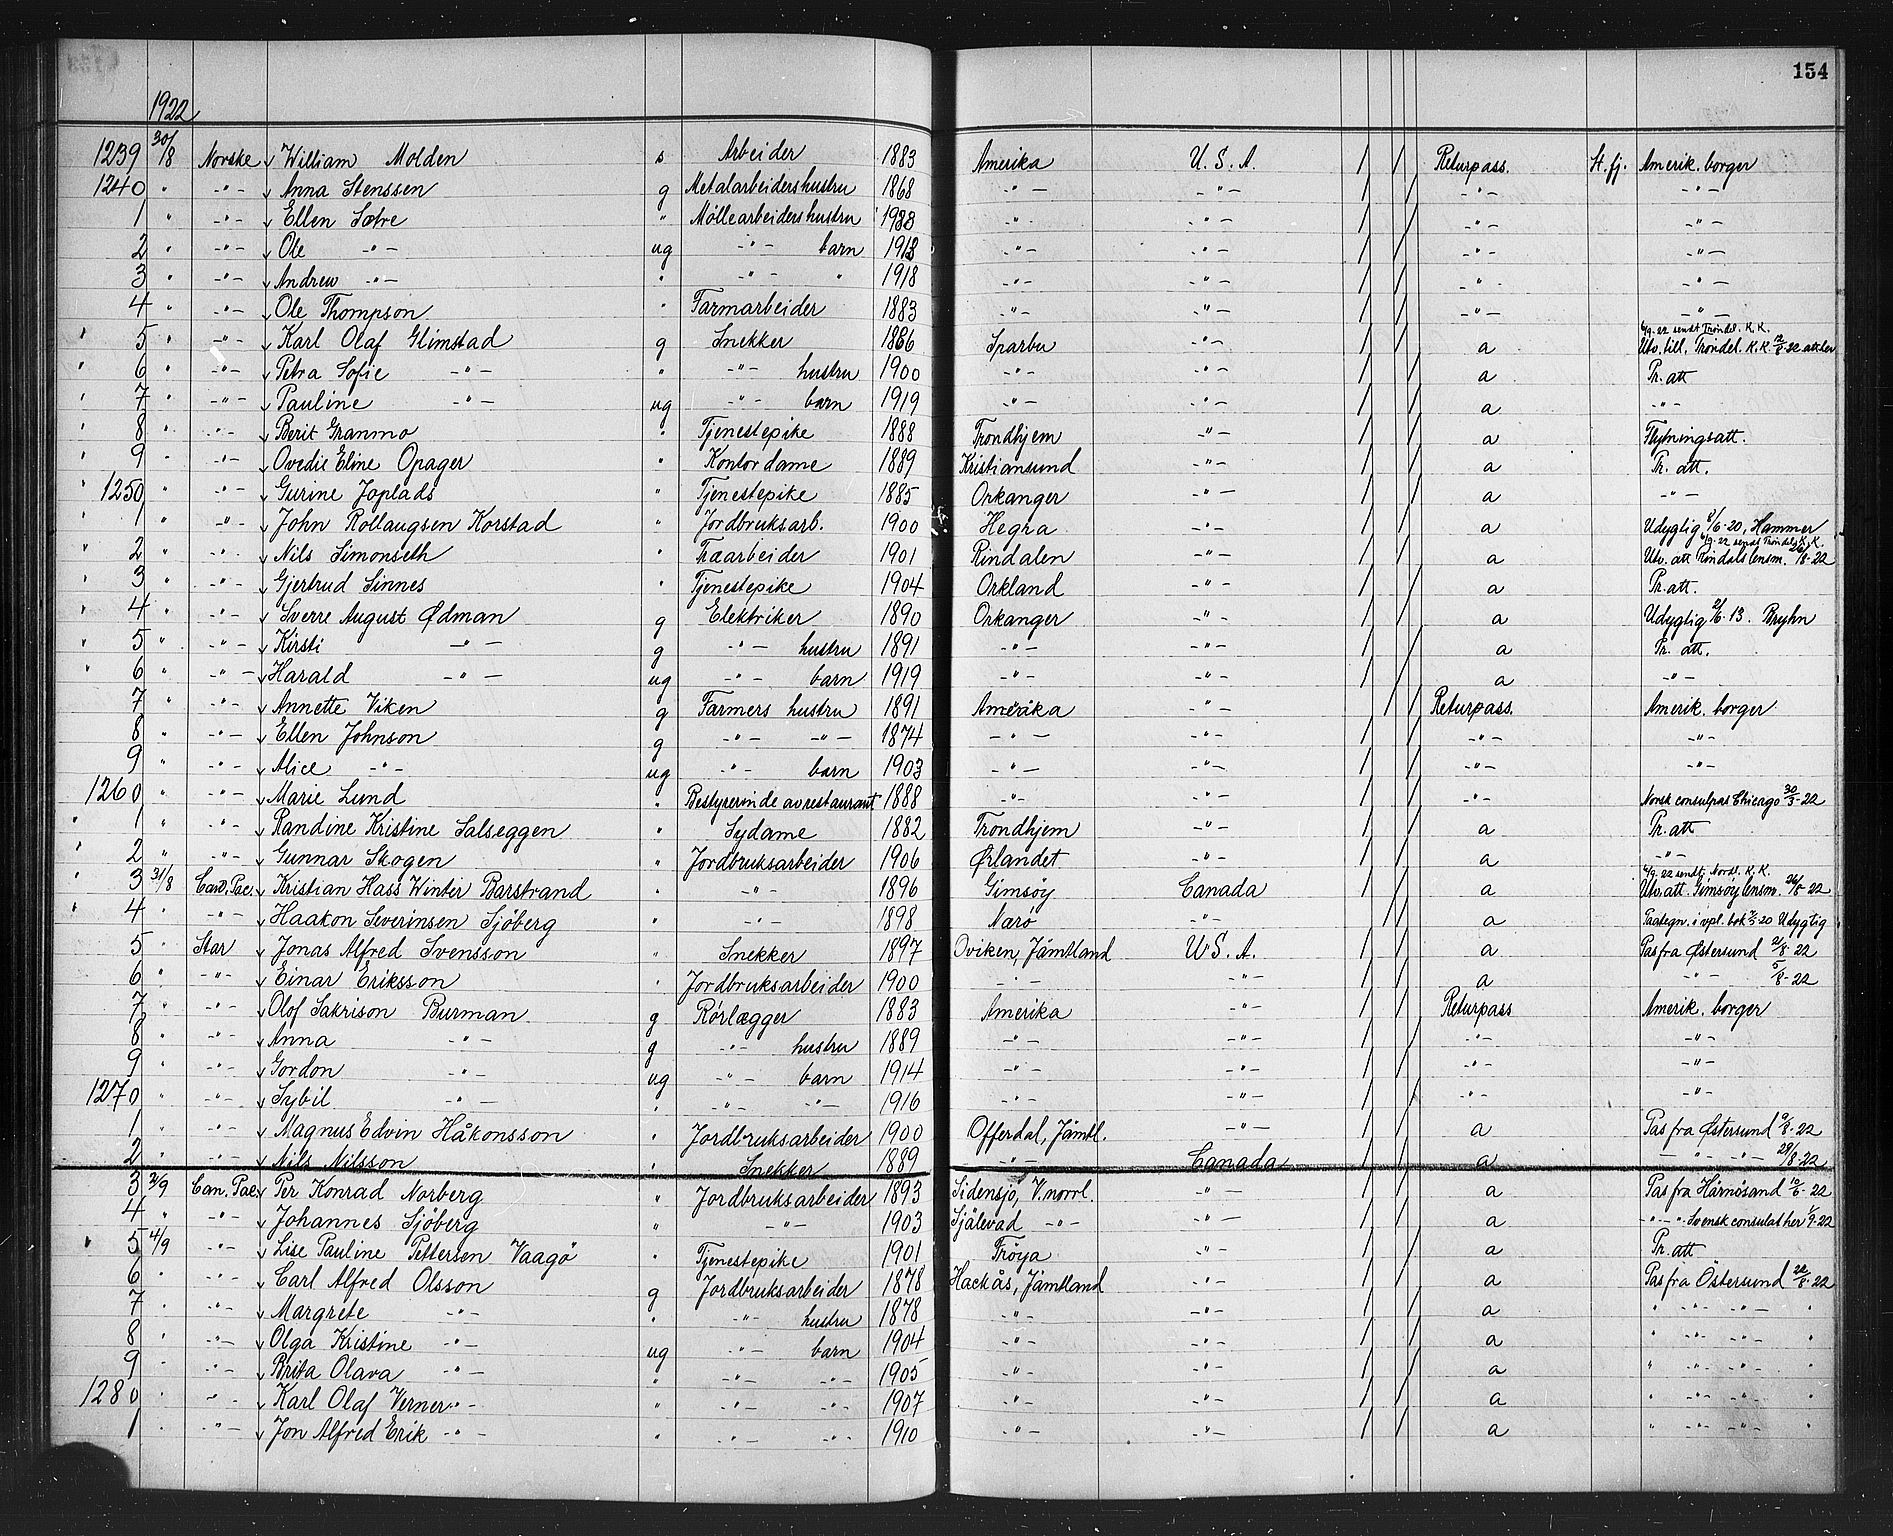 154
1922
1239 30/8 Norske v William Molden s Arbeider 1883 Amerika U.S.A. / / Returpass. St. fj. Amerik. borger
1240 " -"- v Anna Stenssen g Metalarbeiders hustru 1868 -"- -"- / / -"- -"-
1 " -"- v Ellen Sætre " Møllearbeiders hustru -"- -"- / / -"- -"-
2 " -"- v Ole -"- ug -"- barn -"- -"- / / -"- -"-
3 " -"- v Andrew -"- " -"- " 1918 -"- -"- / / -"- -"-
4 " -"- v Ole Thompson " Farmarbeider 1883 -"- -"- / / -"- -"-
6/9.22 sendt Trøndel. K.K.
" 5 " -"- v Karl Olaf Glimstad g Snekker Sparbu -"- / / a Utv. till. Trøndel. K.K.
" 6 " -"- v Petra Sofie -"- " -"- hustru 1900 -"- -"- / / a Pr. att
" 7 " -"- v Pauline -"- ug -"- barn 1919 -"- -"- / / a -"-
" 8 " -"- v Berit Granmo " Tjenestepike 1888 Trondhjem -"- / / a Flytningsatt.
" 9 " -"- v Ovedie Eline Opager " Kontordame 1889 Kristiansund -"- / / a Pr. att.
" 1250 " -"- v Gurine Joplads " Tjenestepike 1885 Orkanger -"- / / a -"-
" 1 " -"- v John Rollaugsen Korstad " Jordbruksarb. 1900 Hegra -"- / / a Udyglig 8/6-20, Hammer
6/9.22 sendt Trøndel. K.K.
" 2 " -"- v Nils Simonseth " Træarbeider 1901 Rindalen -"- / / a Utv. att Rindals lensm. 26/8-22
" 3 " -"- v Gjertrud Sinnes " Tjenestepike 1904 Orkland -"- / / a Pr. att.
" 4 " -"- v Sverre August Ødman g Elektriker 1890 Orkanger -"- / / a Udyglig 2/6-13. Bryhn
" 5 " -"- v Kirsti -"- g -"- hustru 1891 -"- -"- / / a Pr. att.
" 6 " -"- v Harald -"- ug -"- barn 1919 -"- -"- / / a -"-
7 " -"- v Annette Viken g Farmers hustru 1891 Amerika -"- / / Returpass. Amerik. borger
8 " -"- v Ellen Johnson g -"- -"- 1874 -"- -"- / / -"- -"-
9 " -"- v Alice -"- ug -"- barn 1903 -"- -"- / / -"- -"-
1260 " -"- v Marie Lund " Bestyrerinde av restaurant 1888 -"- -"- / / -"- Norsk consulpas Chicago 30/3-22
" 1 " -"- v Randine Kristine Salseggen " Sydame 1882 Trondhjem -"- / / a Pr. att
" 2 " -"- v Gunnar Skogen " Jordbruksarbeider 1906 Ørlandet -"- / / a -"-
6/9.22 sendt Nordl. K.K.
" 3 31/8 Can. Pac. v Kristian Hass Winter Barstrand " -"- 1896 Gimsøy Canada / / a Utv. att. Gimsøy lensm. 26/8-22
" 4 " -"- v Haakon Severinsen Sjöberg " -"- 1898 Nærö -"- / / a Paategn. i vpl. bok Udygtig
5 " Star v Jonas Alfred Svensson " Snekker 1897 Oviken, Jämtland U.S.A. / / a Pas fra Østersund 2/8-22
6 " -"- v Einar Eriksson " Jordbruksarbeider 1900 -"- -"- / / a -"- 5/8-22
7 " -"- v Olof Sakrison Burman g Rørlægger 1883 Amerika -"- / / Returpass Amerik. borger
8 " -"- v Anna -"- g -"- hustru 1889 -"- -"- / / -"- -"-
9 " -"- v Gordon -"- ug -"- barn 1914 -"- -"- / / -"- -"-
1270 " -"- v Sybil -"- " -"- -"- 1916 -"- -"- / / -"- -"-
1 " -"- v Magnus Edvin Håkonsson " Jordbruksarbeider 1900 Offerdal, Jämtl. -"- / / a Pas fra Østersund 9/8-22
2 " -"- v Nils Nilsson " Snekker 1889 -"- Canada / / a -"- -"- 29/8-22
3 2/9 Can. Pac. v Per Konrad Norberg " Jordbruksarbeider 1893 Sidensjö, V.norrl. -"- / / a Pas fra Härnösand 10/6-22
4 " -"- v Johannes Sjöberg " -"- 1903 Själevad -"- -"- / / a -"- Svensk consulat her 1/9-22
" 5 4/9 -"- v Lise Pauline Pettersen Vaagö " Tjenestepike 1901 Fröya -"- / / a Pr. att
6 " -"- v Carl Alfred Olsson g Jordbruksarbeider 1878 Hackås, Jämtland -"- / / a Pas fra Östersund 22/8-22
7 " -"- v Margrete -"- " -"- hustru 1878 -"- -"- / / a " -"- -"- "
8 " -"- v Olga Kristine -"- ug -"- barn 1904 -"- -"- / / a " -"- -"- "
9 " -"- v Brita Olava -"- " -"- -"- 1905 -"- -"- / / a " -"- -"- "
1280 " -"- v Karl Olaf Verner -"- " -"- -"- 1907 -"- -"- / / a " -"- -"- "
1 " -"- v Jon Alfred Erik -"- " -"- -"- 1910 -"- -"- / / a " -"- -"- "